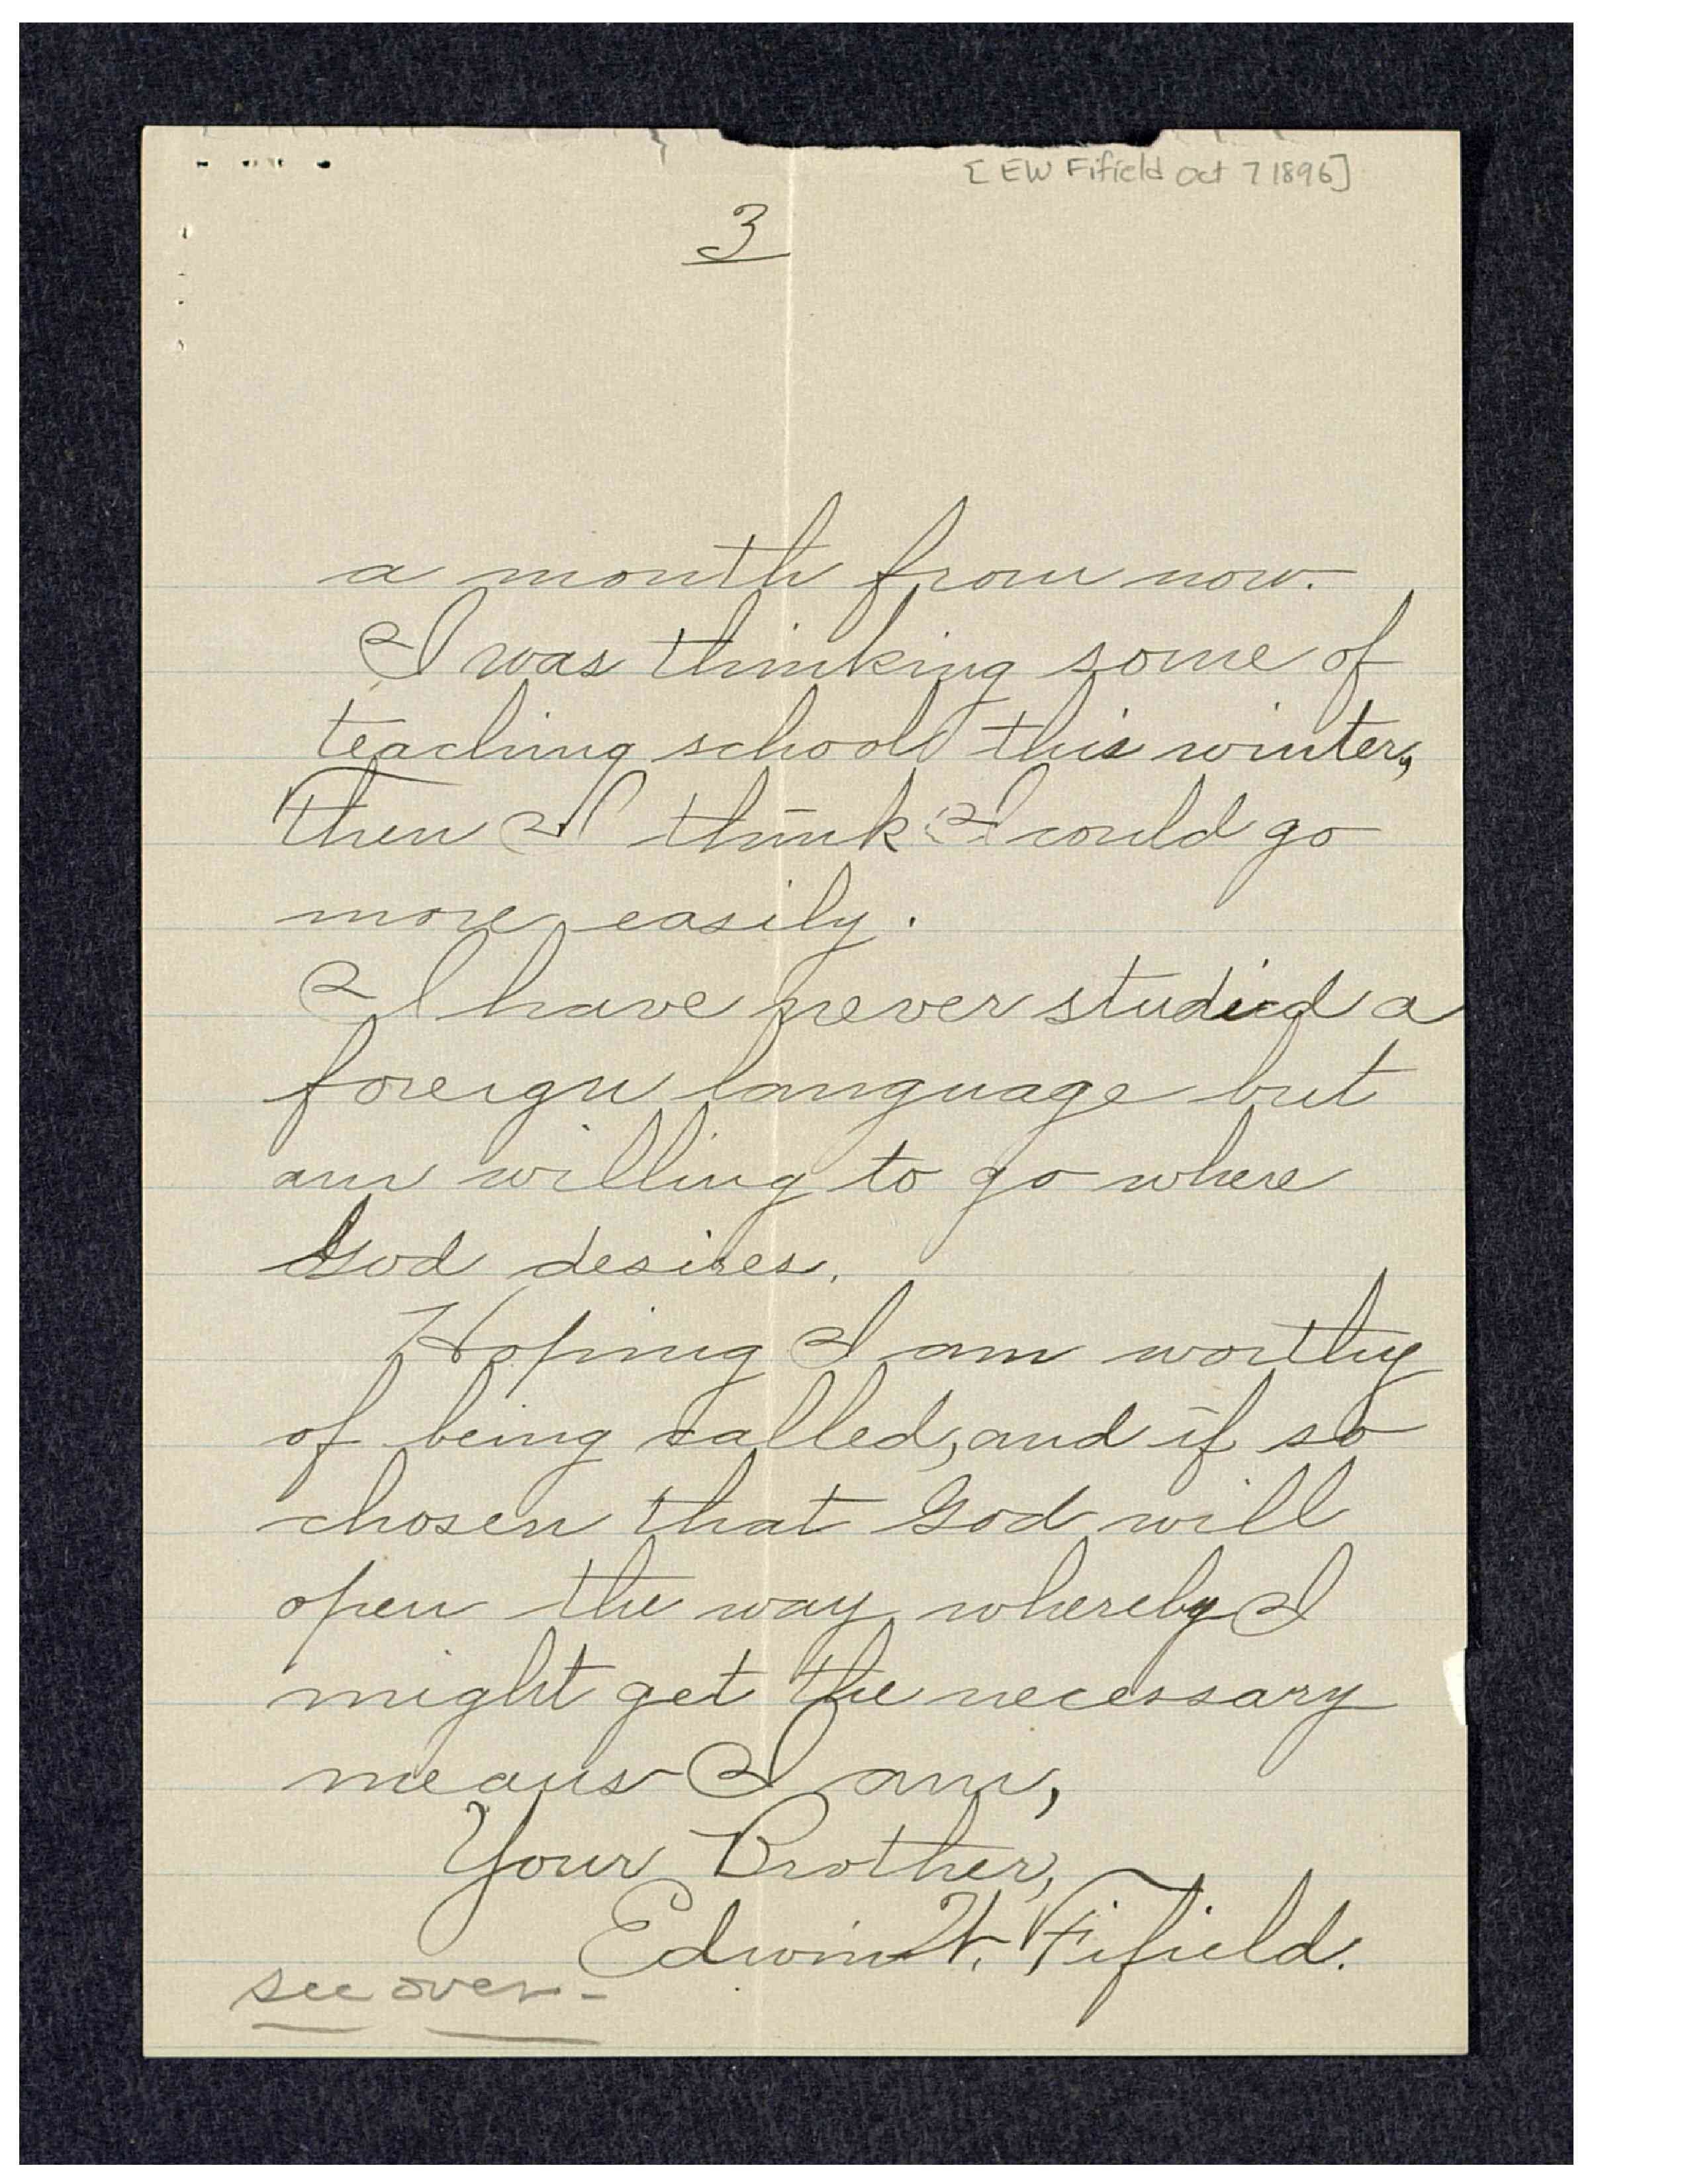 [EW Fifield Oct 7 1896]
3
a month from now.
I was thinking some of
teaching school this winter,
Then I think I could go
more easily.
I have never studied a
foreign language but
am willing to go where
God desires.
Hoping I am worthy
of being called, and if so
chosen that God will
open the way whereby I
might get the necessary
means I am,
Your Brother,
Edwin W. Fifield.
see over-